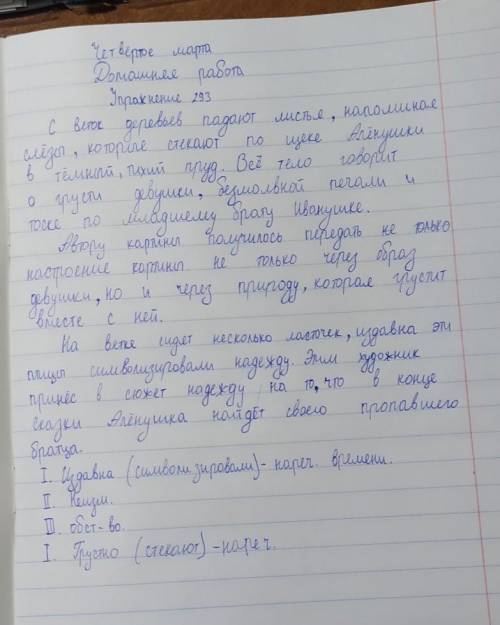 Четвёртое марта
Домашняя работа
Упражнение 293
С веток деревьев падают листья, напоминая
слёзы, которые стекают по щеке Алёнушки
в тёмный, тихий пруд. Всё тело говорит
о грусти девушки, безмолвной печали и
тоске по младшему брату Иванушке.
Автору картины получилось передать не только
настроение картины не только через образ
девушки, но и через природу, которая грустит
вместе с ней.
На ветке сидят несколько ласточек, издавна эти
птицы символизировали надежду. Этим художник
принёс в сюжет надежду на то, что в конце
сказки Алёнушка найдёт своего пропавшего
братца.
I. Издавна (символизировали)- нареч. времени.
II. Неизм.
III. обст-во.
I. Грустно (стекают) -нареч.